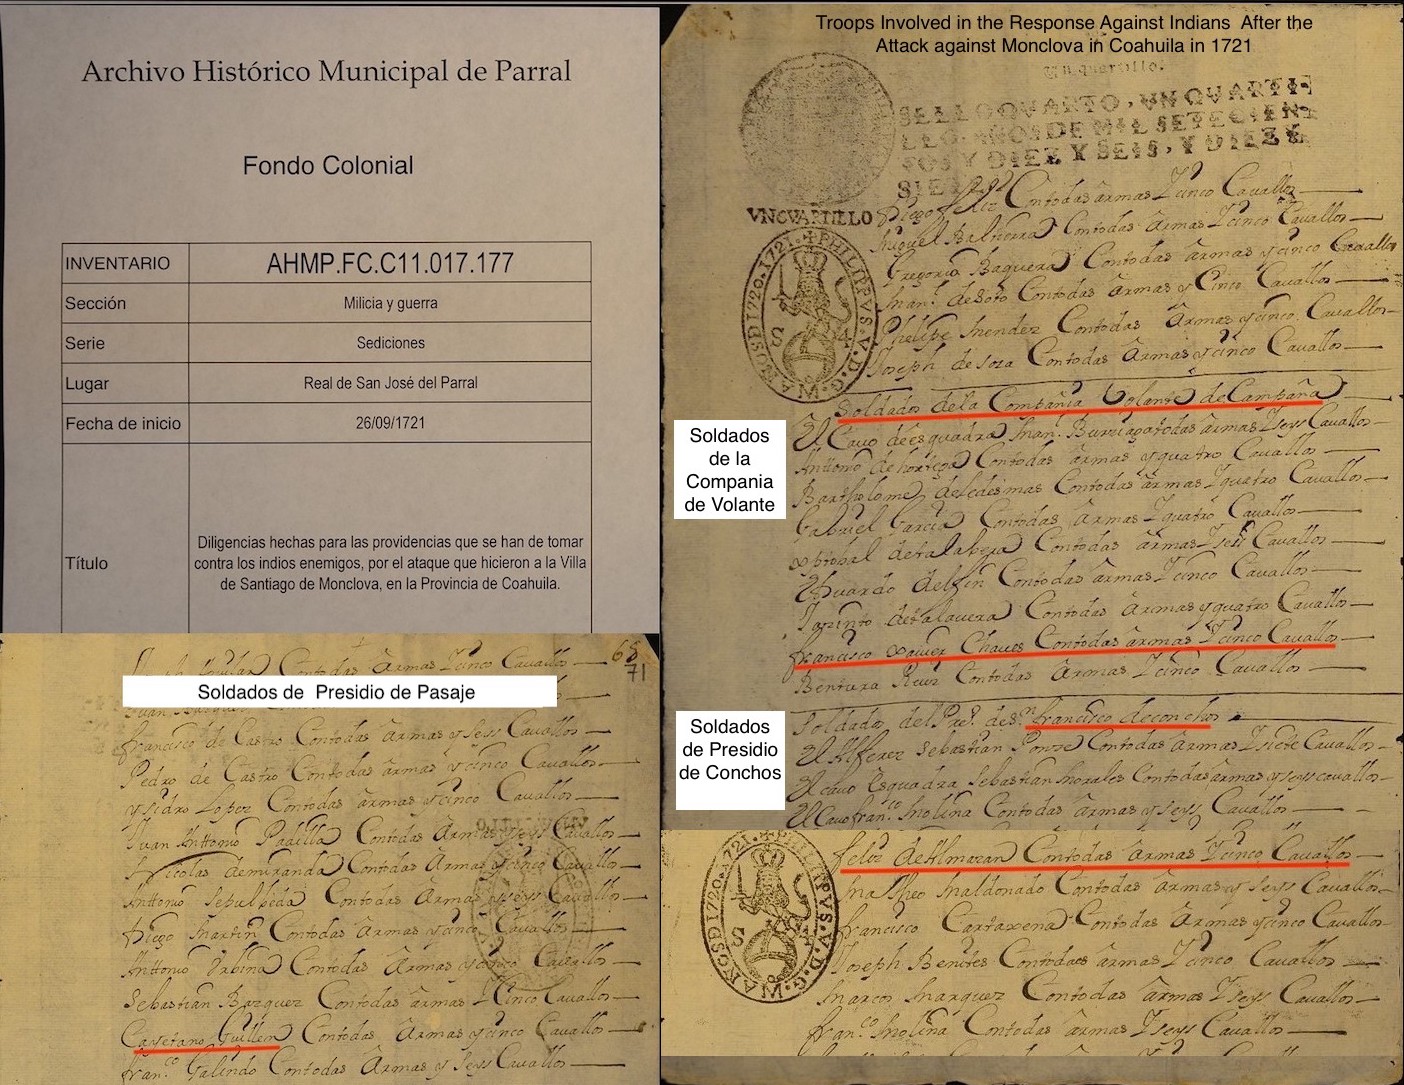 Archivo Histórico Municipal de Parral
Fondo Colonial
INVENTARIO AHMP.FC.C11.017.177
Sección Milicia y guerra
Serie Sediciones
Lugar Real de San José del Parral
Fecha de inicio 26/09/1721
Título Diligencias hechas para las providencias que se han de tomar
contra los indios enemigos, por el ataque que hicieron a la Villa
de Santiago de Monclova, en la Provincia de Coahuila.
Troops Involved in the Response Against Indians After the
Attack against Monclova in Coahuila in 1721
Un quartillo.
SELLO QVARTO, VN QVARTI-
LLO, AÑOS DE MIL SETECIENT
TOS Y DIEZ Y SEIS, Y DIEZ Y
SIE
VN QVARTILLO
PHILIPPVS.V.D.G.
AÑOS D 1720.1721.
S 4
Diego feliz Contodas armas Y cinco Cavallos
Miguel Baltierra Contodas Armas Y cinco Cavallos
Gregorio Baquera Contodas armas y cinco Cavallos
Man.l de Soto Contodas Armas y Cinco Cavallos
Phelipe Mendez Contodas Armas y cinco Cavallos
Joseph de Soza Contodas Armas y cinco Cavallos
Soldados de la Compañia Volante de Campaña
Soldados
de la
Compania
de Volante
El Cavo de esquadra Man. armas Y seys Cavallos
Anttonio de hortega Contodas armas y quatro Cavallos
Bartholome deledesmas Contodas armas Y quatro Cavallos
Gabriel Garcia Contodas Armas Y quatro Cavallos
xptobal detalabera Contodas Armas Y seys Cavallos
Eduardo delfin Contodas Armas Y cinco Cavallos
Jazinto detalavera Contodas Armas y quatro Cavallos
francisco xavier Chaves Contodas armas Y cinco Cavallos
Bentura Ruiz Contodas Armas Y cinco Cavallos
Soldados del Pre.o de S.n francisco de conchos
Soldados
de Presidio
de Conchos
El Alferez Sebastian Ponze Contodas Armas Y siete Cavallos
El cavo Esquadra Sebastian Morales Contodas armas y seys cavallos
El Cavo fran.co Molina Contodas Armas y seys Cavallos
PHILIPPVS.V.D.G.
AÑOS D 1720.1721.
S 4
feliz de Almazan Contodas Armas Y cinco Cavallos
Matheo Maldonado Contodas Armas y seys Cavallos
francisco Cartaxena Contodas Armas y cinco Cavallos
Joseph Benites Contodas armas Y cinco Cavallos
Marcos Marquez Contodas Armas Y seys Cavallos
fran.co Molina Contodas Armas Y seys Cavallos
Contodas Armas Y cinco Cavallos 68
71
Soldados de Presidio de Pasaje
francisco de Castro Contodas Armas y seys Cavallos
Pedro de Castro Contodas armas y cinco Cavallos
ysidro Lopez Contodas armas y cinco Cavallos
Juan Anttonio Padilla Contodas Armas y seys Cavallos
Nicolas demiranda Contodas Armas y cinco Cavallos
Anttonio Sepulbeda Contodas armas y seys Cavallos
Diego Martin Contodas Armas y cinco Cavallos
Anttonio Urbina Contodas Armas y cinco Cavallos
Sebastian Bazquez Contodas armas Y Cinco Cavallos
Cayetano Guillen Contodas Armas y cinco Cavallos
fran.co Galindo Contodas Armas y seys Cavallos